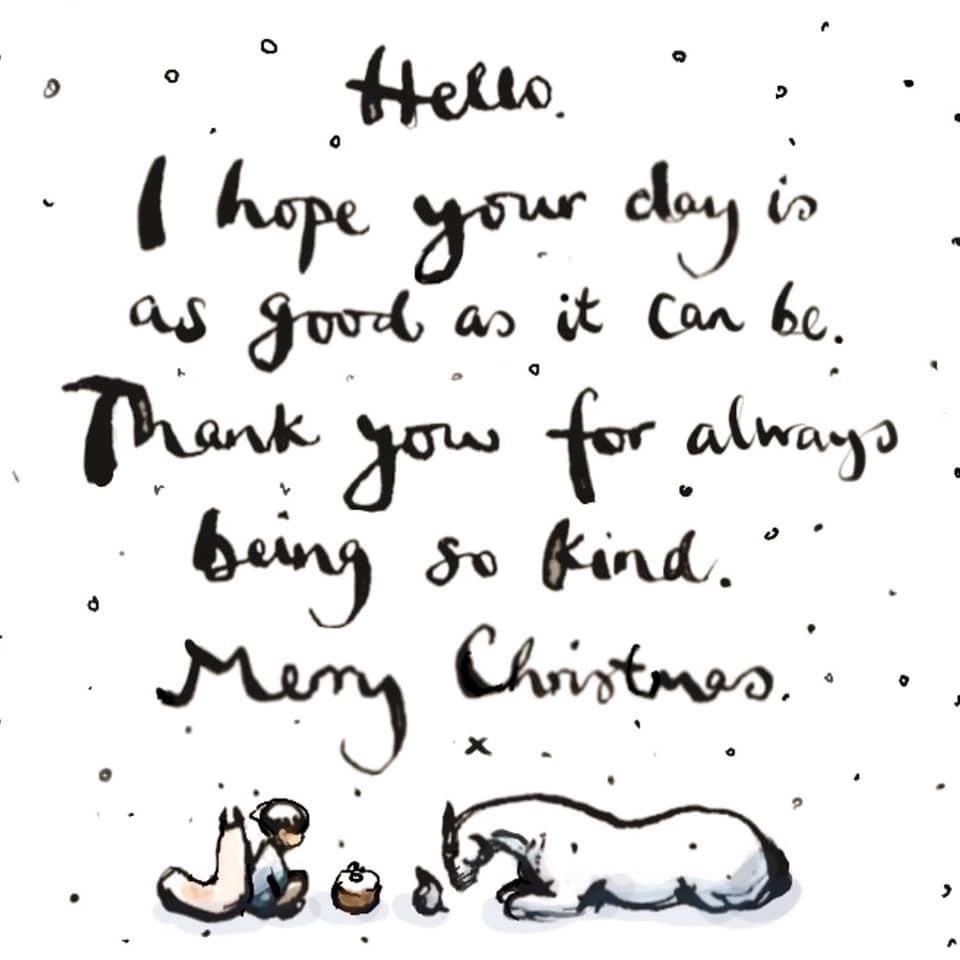 Hello.
I hope your day is
as good as it can be.
Thank you for always
being so kind.
Merry Christmas.
x